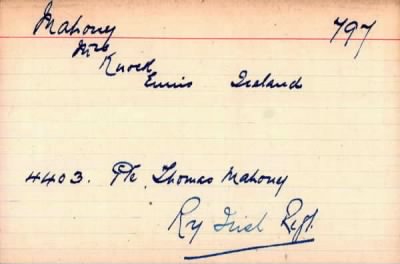 Mahony 797
Mrs
Knock
Ennis Ireland
4403. Pte Thomas Mahony
Ry Irish Regt.